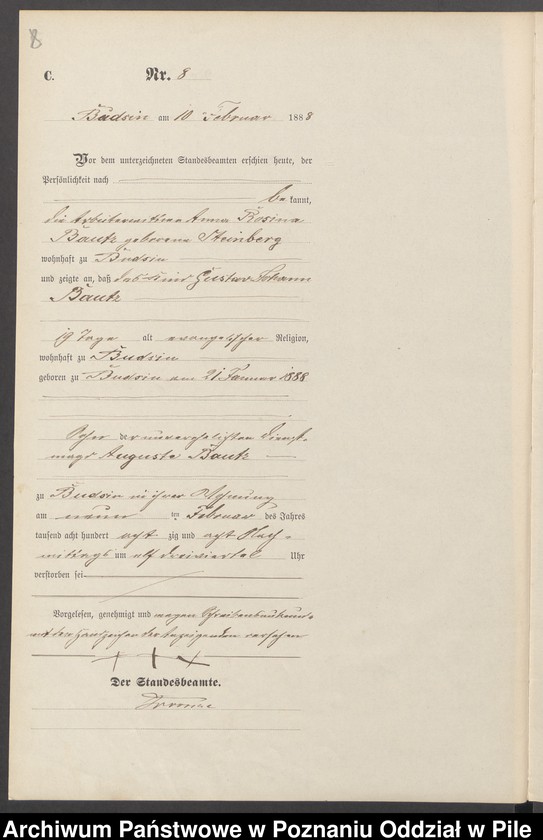 8
C.
Nr. 8
Budsin am 10 Februar 1888
Vor dem unterzeichneten Standesbeamten erschien heute, der
Persönlichkeit nach
be kannt,
die Arbeiterwittwe Anna Rosina
Bautz geborene Steinberg
wohnhaft zu Budsin
und zeigte an, daß das Kind Gustav Johann
Bautz
19 Tage alt evangelischer Religion,
wohnhaft zu Budsin
geboren zu Budsin am 21 Januar 1888
Sohn der unverehelichten Dienst-
magd Auguste Bautz
zu Budsin in ihrer Wohnung
am neun ten Februar des Jahres
tausend acht hundert acht zig und acht Nach-
mittags um elf dreiviertel Uhr
verstorben sei.
Vorgelesen, genehmigt und wegen Schreibensunkunde
mit den Handzeichen der Anzeigenden versehen
+ + +
Der Standesbeamte.
Archiwum Państwowe w Poznaniu Oddział w Pile